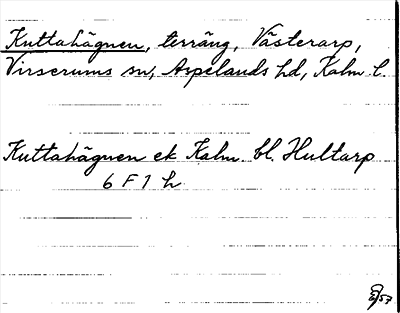 Kuttahägnen, terräng, Västerarp,
Virserums sn, Aspelands hd, Kalm. l.
Kuttahägnen ek Kalm. bl. Hultarp
6 F 1 h
57